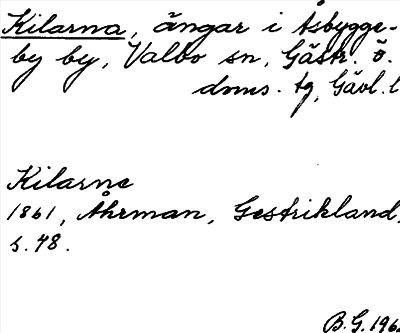 Kilarna, ängar i Åsbygge-
by by, Valbo sn, Gästr. ö.
doms. tg, Gävl. l
Kilarne
1861, Åhrman, Gestrikland,
s. 48.
B.G. 196